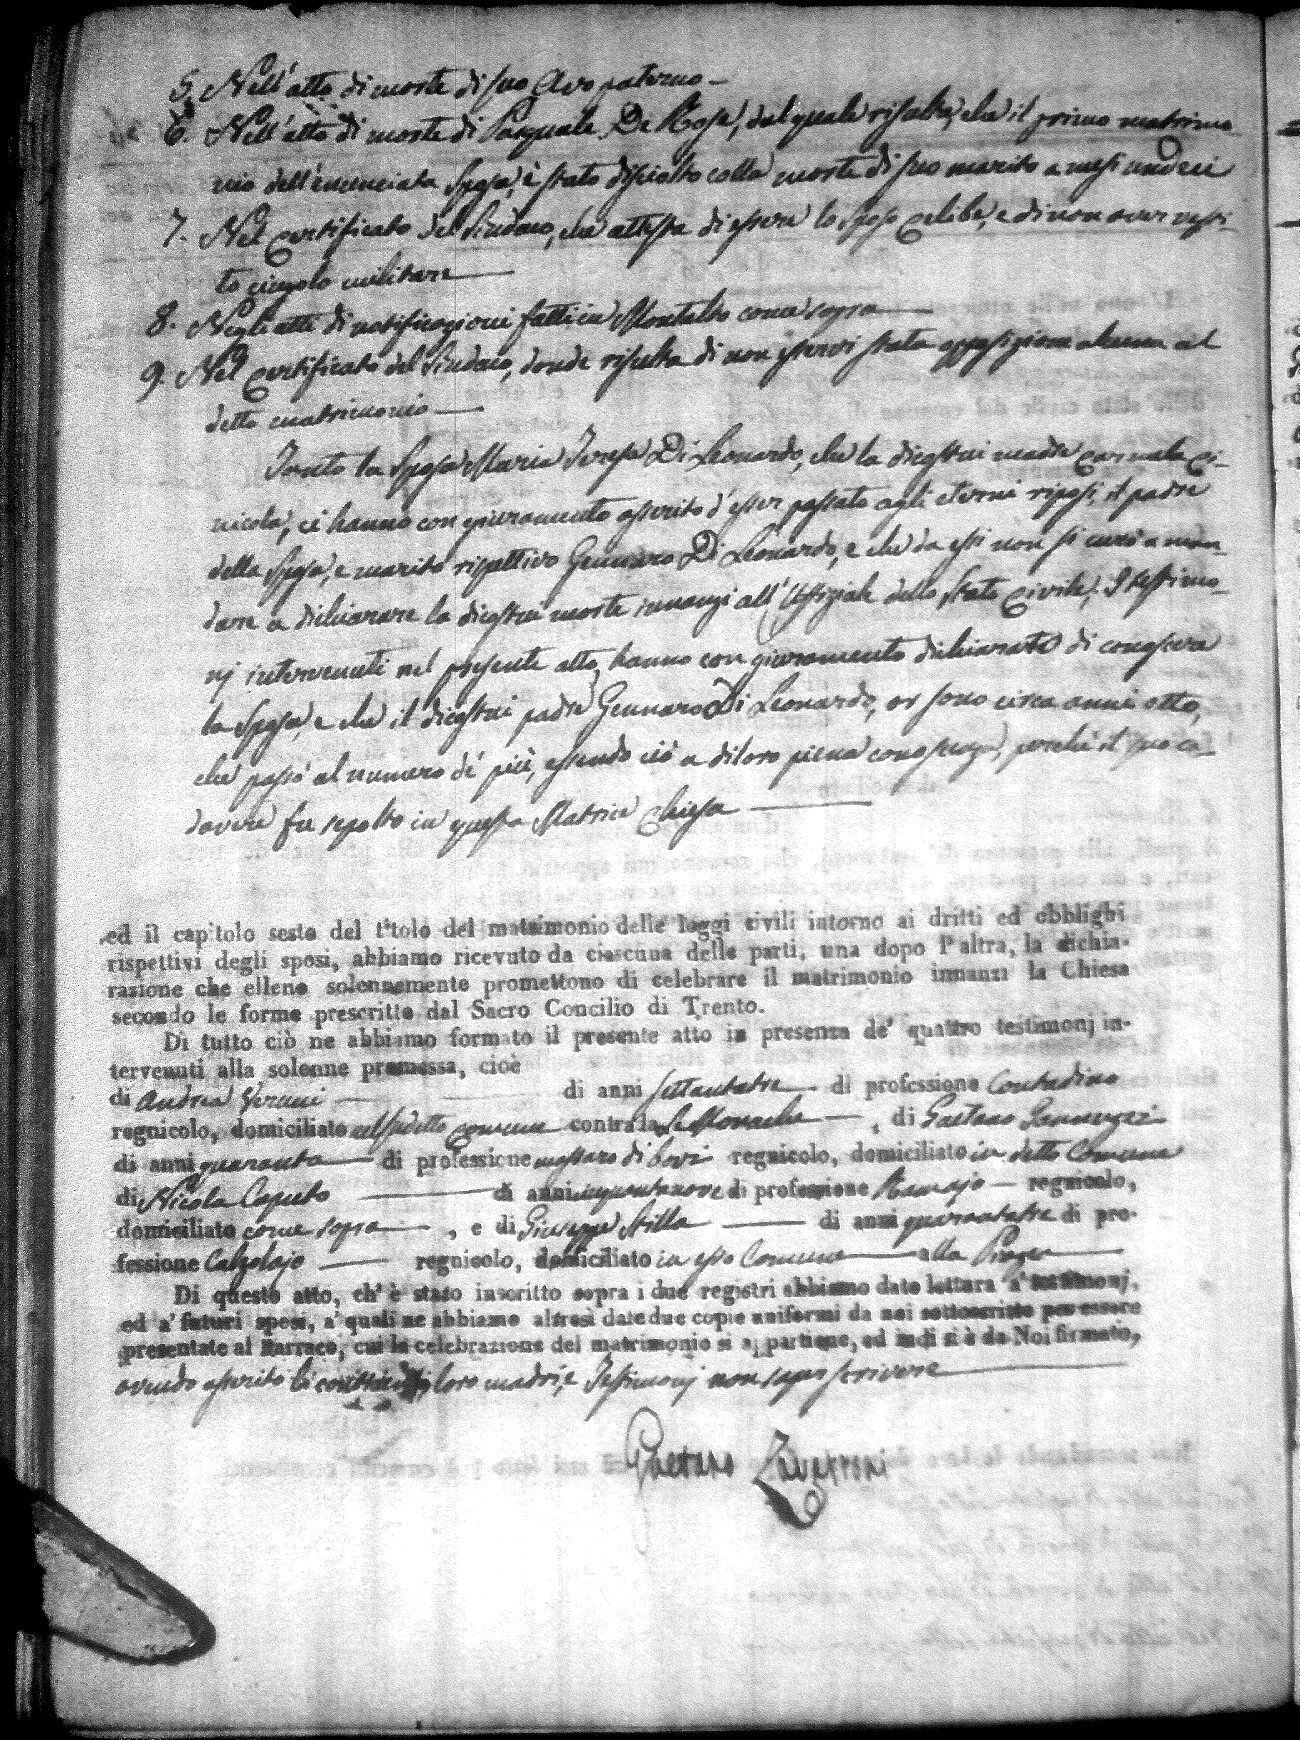 5. Nell'atto di morte di suo Avo paterno —
6. Nell'atto di morte di Pasquale De Rose, dal quale risulta, che il primo matrimo
nio dell'enunciata Sposa, è stato disciolto colla morte di suo marito a mesi undeci
7. Nel Certificato del Sindaco, che attesta di essere lo Sposo celibe, e di non aver vesti-
to cingolo militare —
8. Negli atti di notificazioni fatti in Montalto come sopra —
9. Nel Certificato del Sindaco, donde risulta di non esservi stata opposizione alcuna al
detto matrimonio —
Tanto la Sposa Maria Teresa Di Leonardo, che la di costui madre Carmela
ci hanno con giuramento asserito d'esser passato agli eterni riposi, il padre
della Sposa, e marito rispettivo Gennaro Di Leonardo, e che da essi non si curò a man-
dare a dichiarare la di costui morte innanzi all'Uffiziale dello Stato Civile; I testimo-
nj intervenuti nel presente atto, hanno con giuramento dichiarato di conoscere
la Sposa, e che il di costui padre Gennaro Di Leonardo, or sono circa anni otto,
che passò al numero de' più, essendo ciò a di loro piena conoscenza, perchè il suo ca-
davere fu sepolto in questa Matrice Chiesa —
ed il capitolo sesto del titolo del matrimonio delle leggi civili intorno ai dritti ed obblighi
rispettivi degli sposi, abbiamo ricevuto da ciascuna delle parti, una dopo l'altra, la dichia-
razione che elleno solennemente promettono di celebrare il matrimonio innanzi la Chiesa
secondo le forme prescritte dal Sacro Concilio di Trento.
Di tutto ciò ne abbiamo formato il presente atto in presenza de' quattro testimonj in-
tervenuti alla solenne promessa, cioè
di Andrea — di anni settantatre — di professione Contadino
regnicolo, domiciliato nel sudetto Comune contrada le Monache —, di Gaetano
di anni quaranta — di professione massaro di bovi regnicolo, domiciliato in detto Comune
di Nicola Caputo — di anni cinquantanove di professione Ramajo — regnicolo,
domiciliato come sopra —, e di Giuseppe Stilla — di anni quarantatre di pro-
fessione Calzolajo — regnicolo, domiciliato in esso Comune — alla
Di questo atto, ch' è stato inscritto sopra i due registri abbiamo dato lettura a' testimonj,
ed a' futuri sposi, a' quali ne abbiamo altresì date due copie uniformi da noi sottoscritte per essere
presentate al Parroco, cui la celebrazione del matrimonio si appartiene, ed indi si è da Noi firmato,
avendo asserito li loro madri, e Testimonj non saper scrivere —
Gaetano Zavarroni